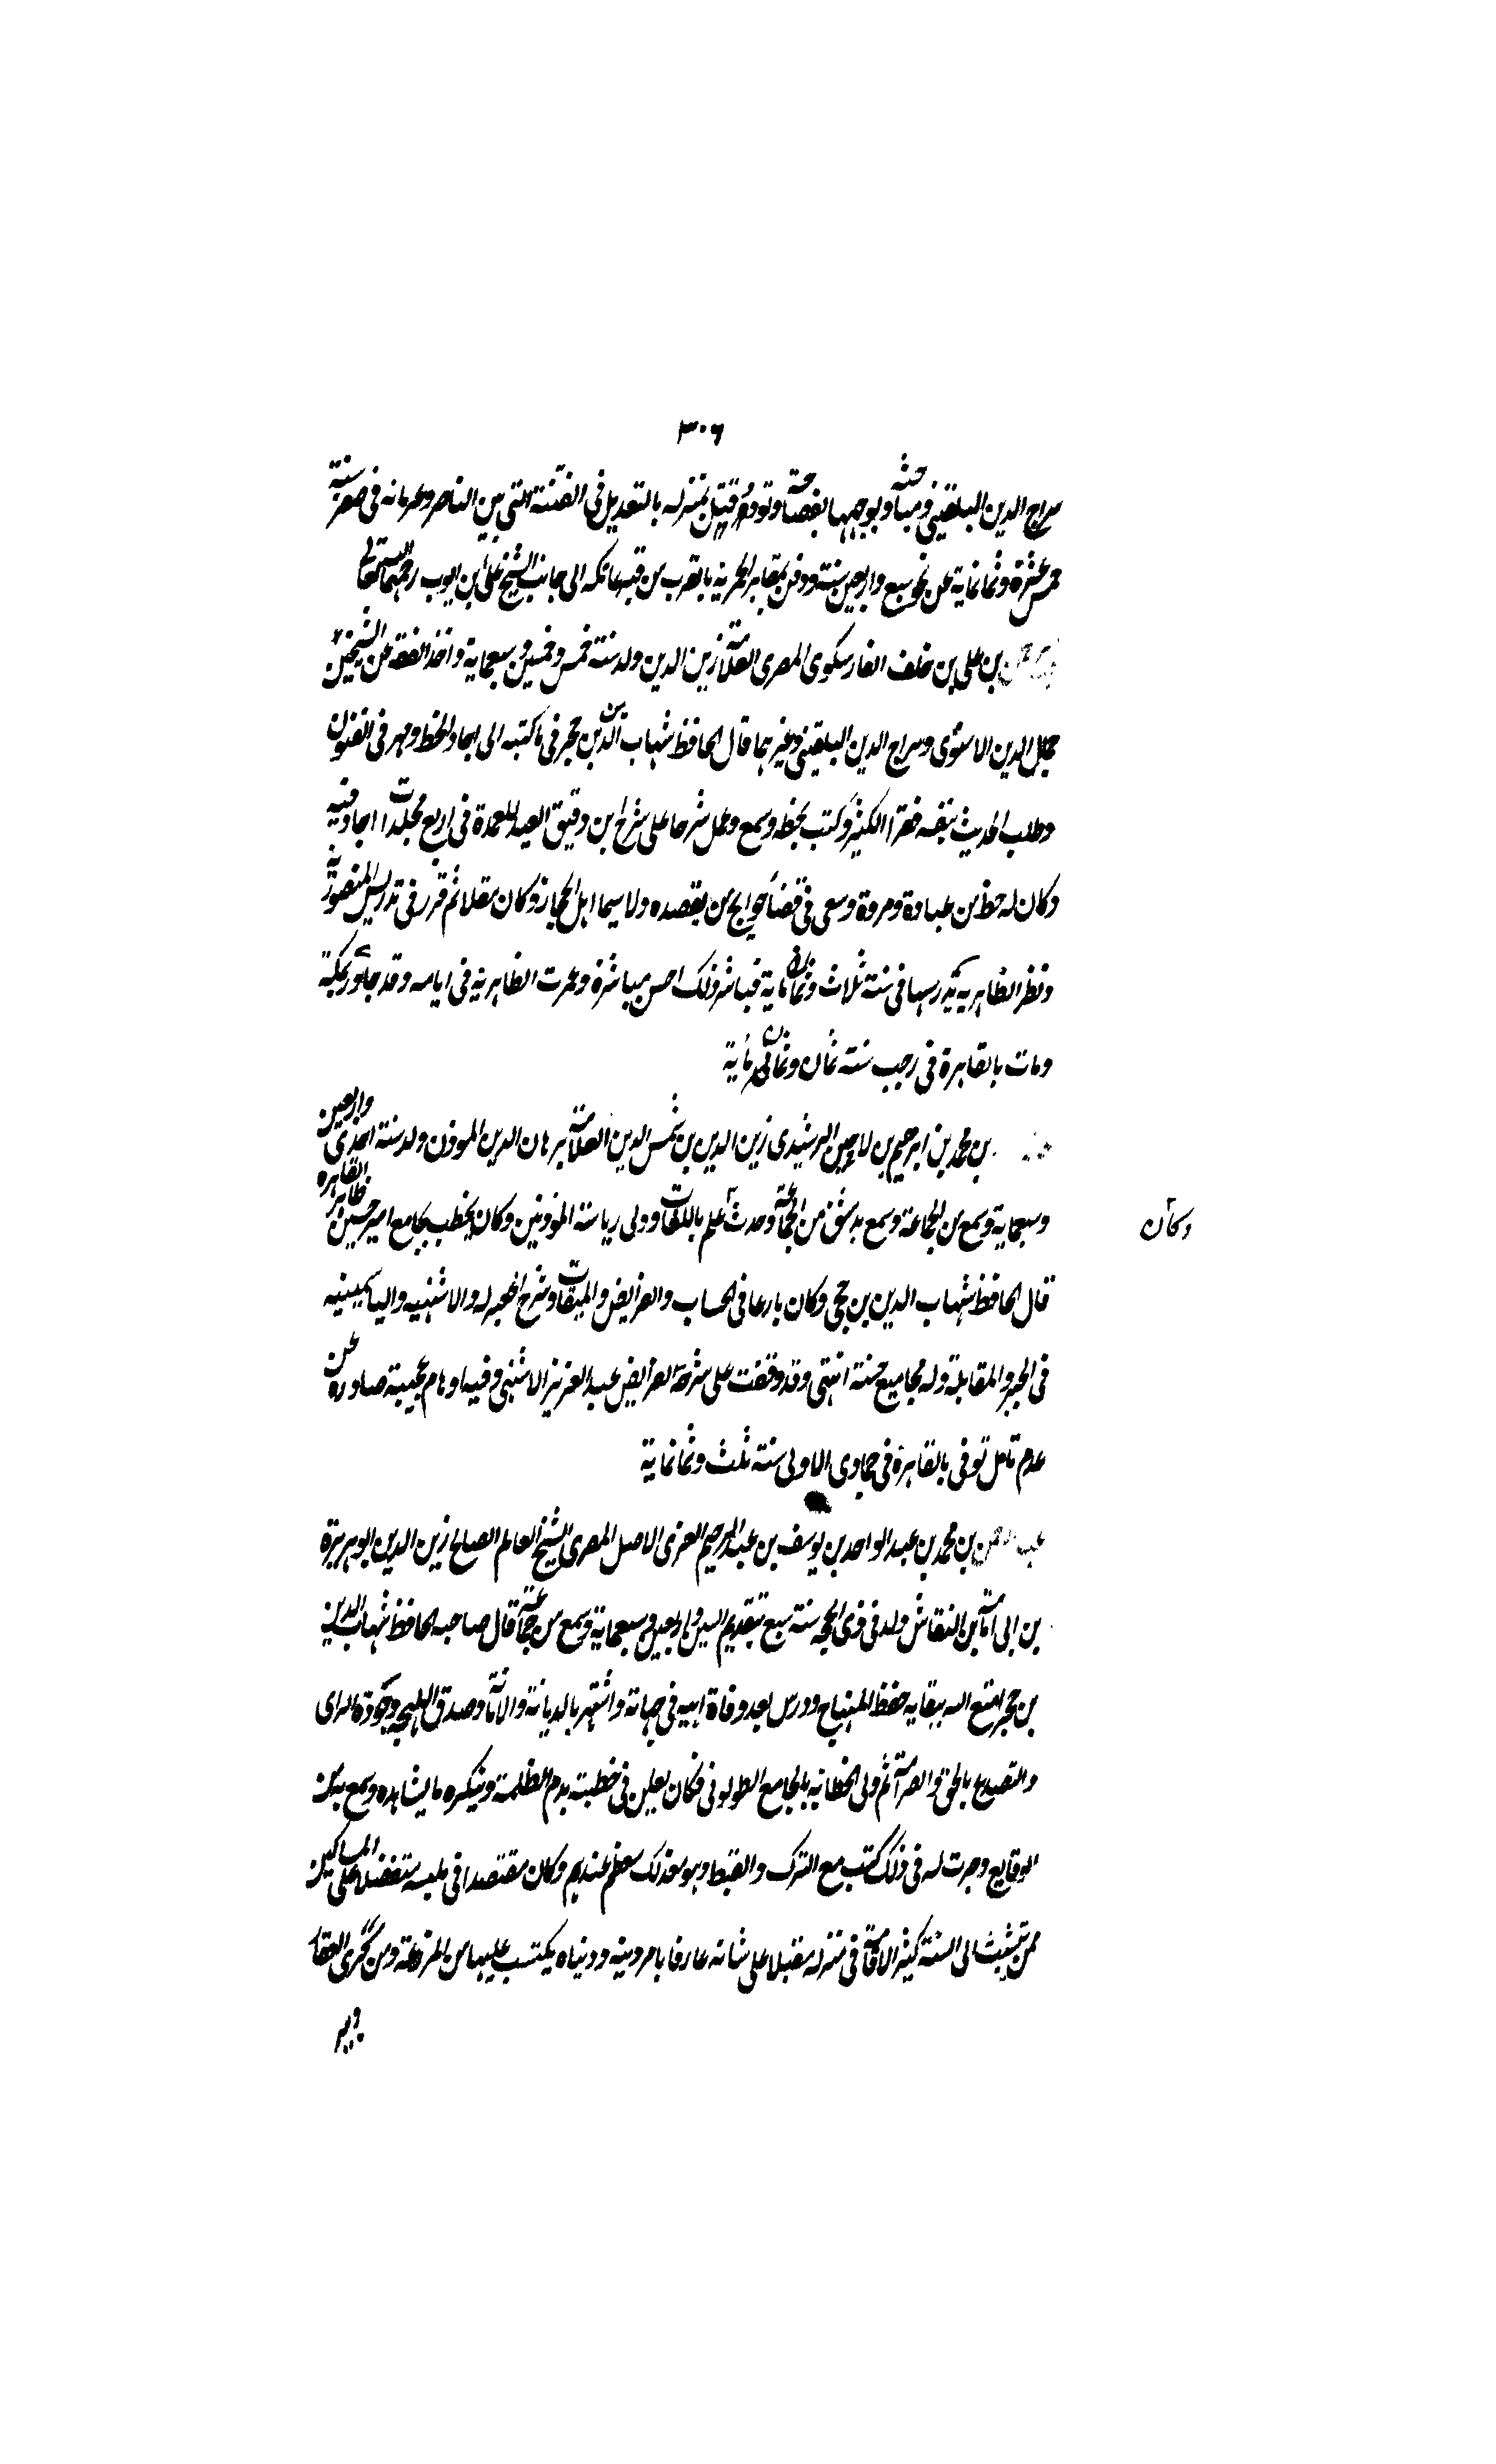 ٣٠٦
سراج الدين البلقيني ومباحثه ويوجهها بفصاحة وتودد قتل بمنزله بالتعديل في الفتنة التي بين الناصر وغرمائه في صفر سنة
خمس عشرة وثمانماية عن نحو سبع واربعين سنة ودفن بمقابر الحمرية بالقرب من قبة عاتكه الى جانب الشيخ علي بن ايوب رحمهما الله تعالى
بن علي بن خلف الفارسكوى المصرى العلامة زين الدين ولد سنة خمس وخمسين وسبعماية واخذ الفقه عن الشيخين
جمال الدين الاسنوى وسراج الدين البلقيني وغيرهما قال الحافظ شهاب الدين بن حجر في ما كتبه الى اجاد الخط ومهر في الفنون
وطلب الحديث بنفسه فقرأ الكثير وكتب بخطه وسمع وعمل شرحا على شرح ابن دقيق العيد للعمدة في اربع مجلدات اجاد فيه
وكان له حظ من عبادة ومروة وسعى في قضاء حوايج من يقصده ولا سيما اهل الحجاز وكان مقلا ثم قرر في تدريس المنصورية
ونظر الظاهرية وتدريسها في سنة ثلاث وثمانماية فباشر ذلك احسن مباشرة وعمرت الظاهرية في ايامه وقد جاور بمكة
ومات بالقاهرة في رجب سنة ثمان وثمانماية
بن محمد بن ابرهيم بن لاجين الرشيدى زين الدين بن شمس الدين العلامة برهان الدين الموذن ولد سنة احدى واربعين
وسبعماية وسمع من الجماعة وسمع بدمشق من الجماعة وحدث علم بالميقات وولى رياسة الموذنين وكان يخطب بجامع امير حسين ظاهر القاهره
وكان
قال الحافظ شهاب الدين بن حجى وكان بارعا في الحساب والفرايض والميقات وشرح الجعبريه والاشنهيه والياسمينيه
في الجبر والمقابلة وله مجاميع حسنة انتهى وقد وقفت على شرحه لفرايض عبد العزيز الاشنهي وفيه اوهام عجيبة صادره عن
عدم تامل توفى بالقاهرة في جمادى الاولى سنة ثلث وثمانماية
عبد الرحمن بن محمد بن عبد الواحد بن يوسف بن عبد الرحيم العزى الاصل المصرى الشيخ العالم الصالح زين الدين ابو هريرة
بن ابى امامة بن النقاش ولد في ذى الحجه سنة سبع بتقديم السين واربعين وسبعماية وسمع من جماعة قال صاحبه الحافظ شهاب الدين
بن حجر امتع الله ببقايه حفظ المنهاج ودرس بعد وفاة ابيه في جهاته واشتهر بالديانة والامانة وصدق اللهجة وجودة الراى
والتصديع بالحق والصرامة ثم ولى الخطابة بالجامع الطولونى فكان يعلن في خطبته بذم الظلمة وينكره ما يشاهده وسمع بتلك
الوقايع وجرت له في ذلك كتب مع الترك والقبط وهو مع ذلك معظم عندهم وكان مقتصدا في ملبسه متفضلا على المساكين
ممن ينسب الى السنة كثير الاقامة في منزله مقبلا على شانه عارفا بامر دينه ودنياه يكتسب عليها من المزرعة ومن كرى العقار